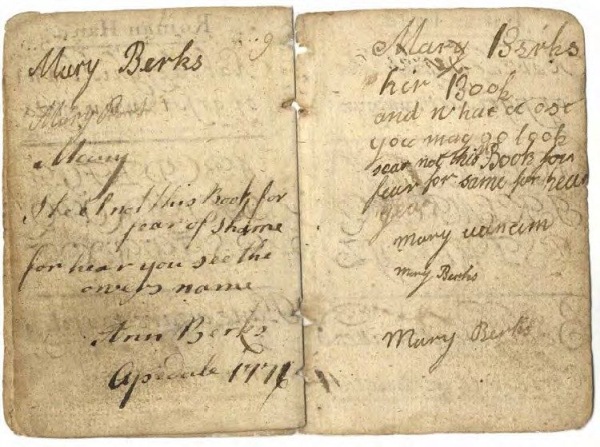 Mary Berks
Mary
Mary
Steel not this Book for
fear of shame
for hear you see the
owers name
Ann Berks
Apedale 177
Mary Berks
her Book
and
you may go look
not this Book for
fear for same for hear
mary
mary Berks
Mary Berks